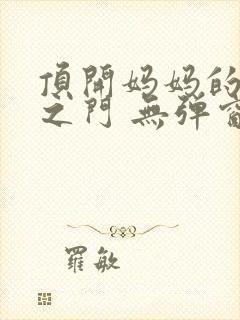 頂開妈妈的
之门 無弹窗
羅敏